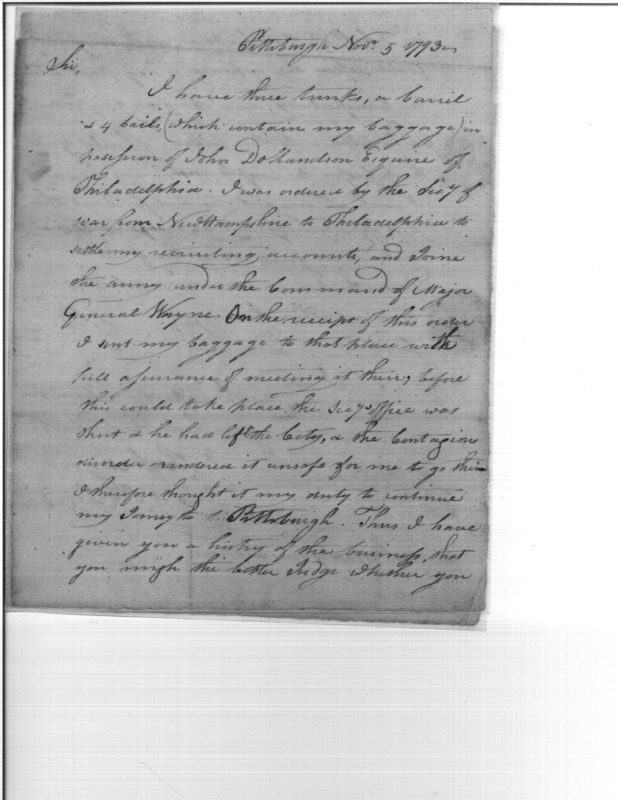 Pittsburgh Nov. 5 1793
Sir,
I have three trunks, a barril
& 4 bails, (which contain my baggage) in
possession of John Donnaldson Esquire of
Philadelphia. I was ordered by the Secy of
war from New Hampshire to Philadelphia to
settle my recruiting accounts, and Joine
the army under the Command of Major
General Wayne. On the receipt of this order
I sent my baggage to that place with
full assurance of meeting it their, before
this could take place the Secys office was
shut & he had left the City, & the Contagious
disorder rendered it unsafe for me to go their
I therefore thought it my duty to continue
my Jorney to Pittsburgh. Thus I have
given you a history of the business, that
you migh the better Judge whether you